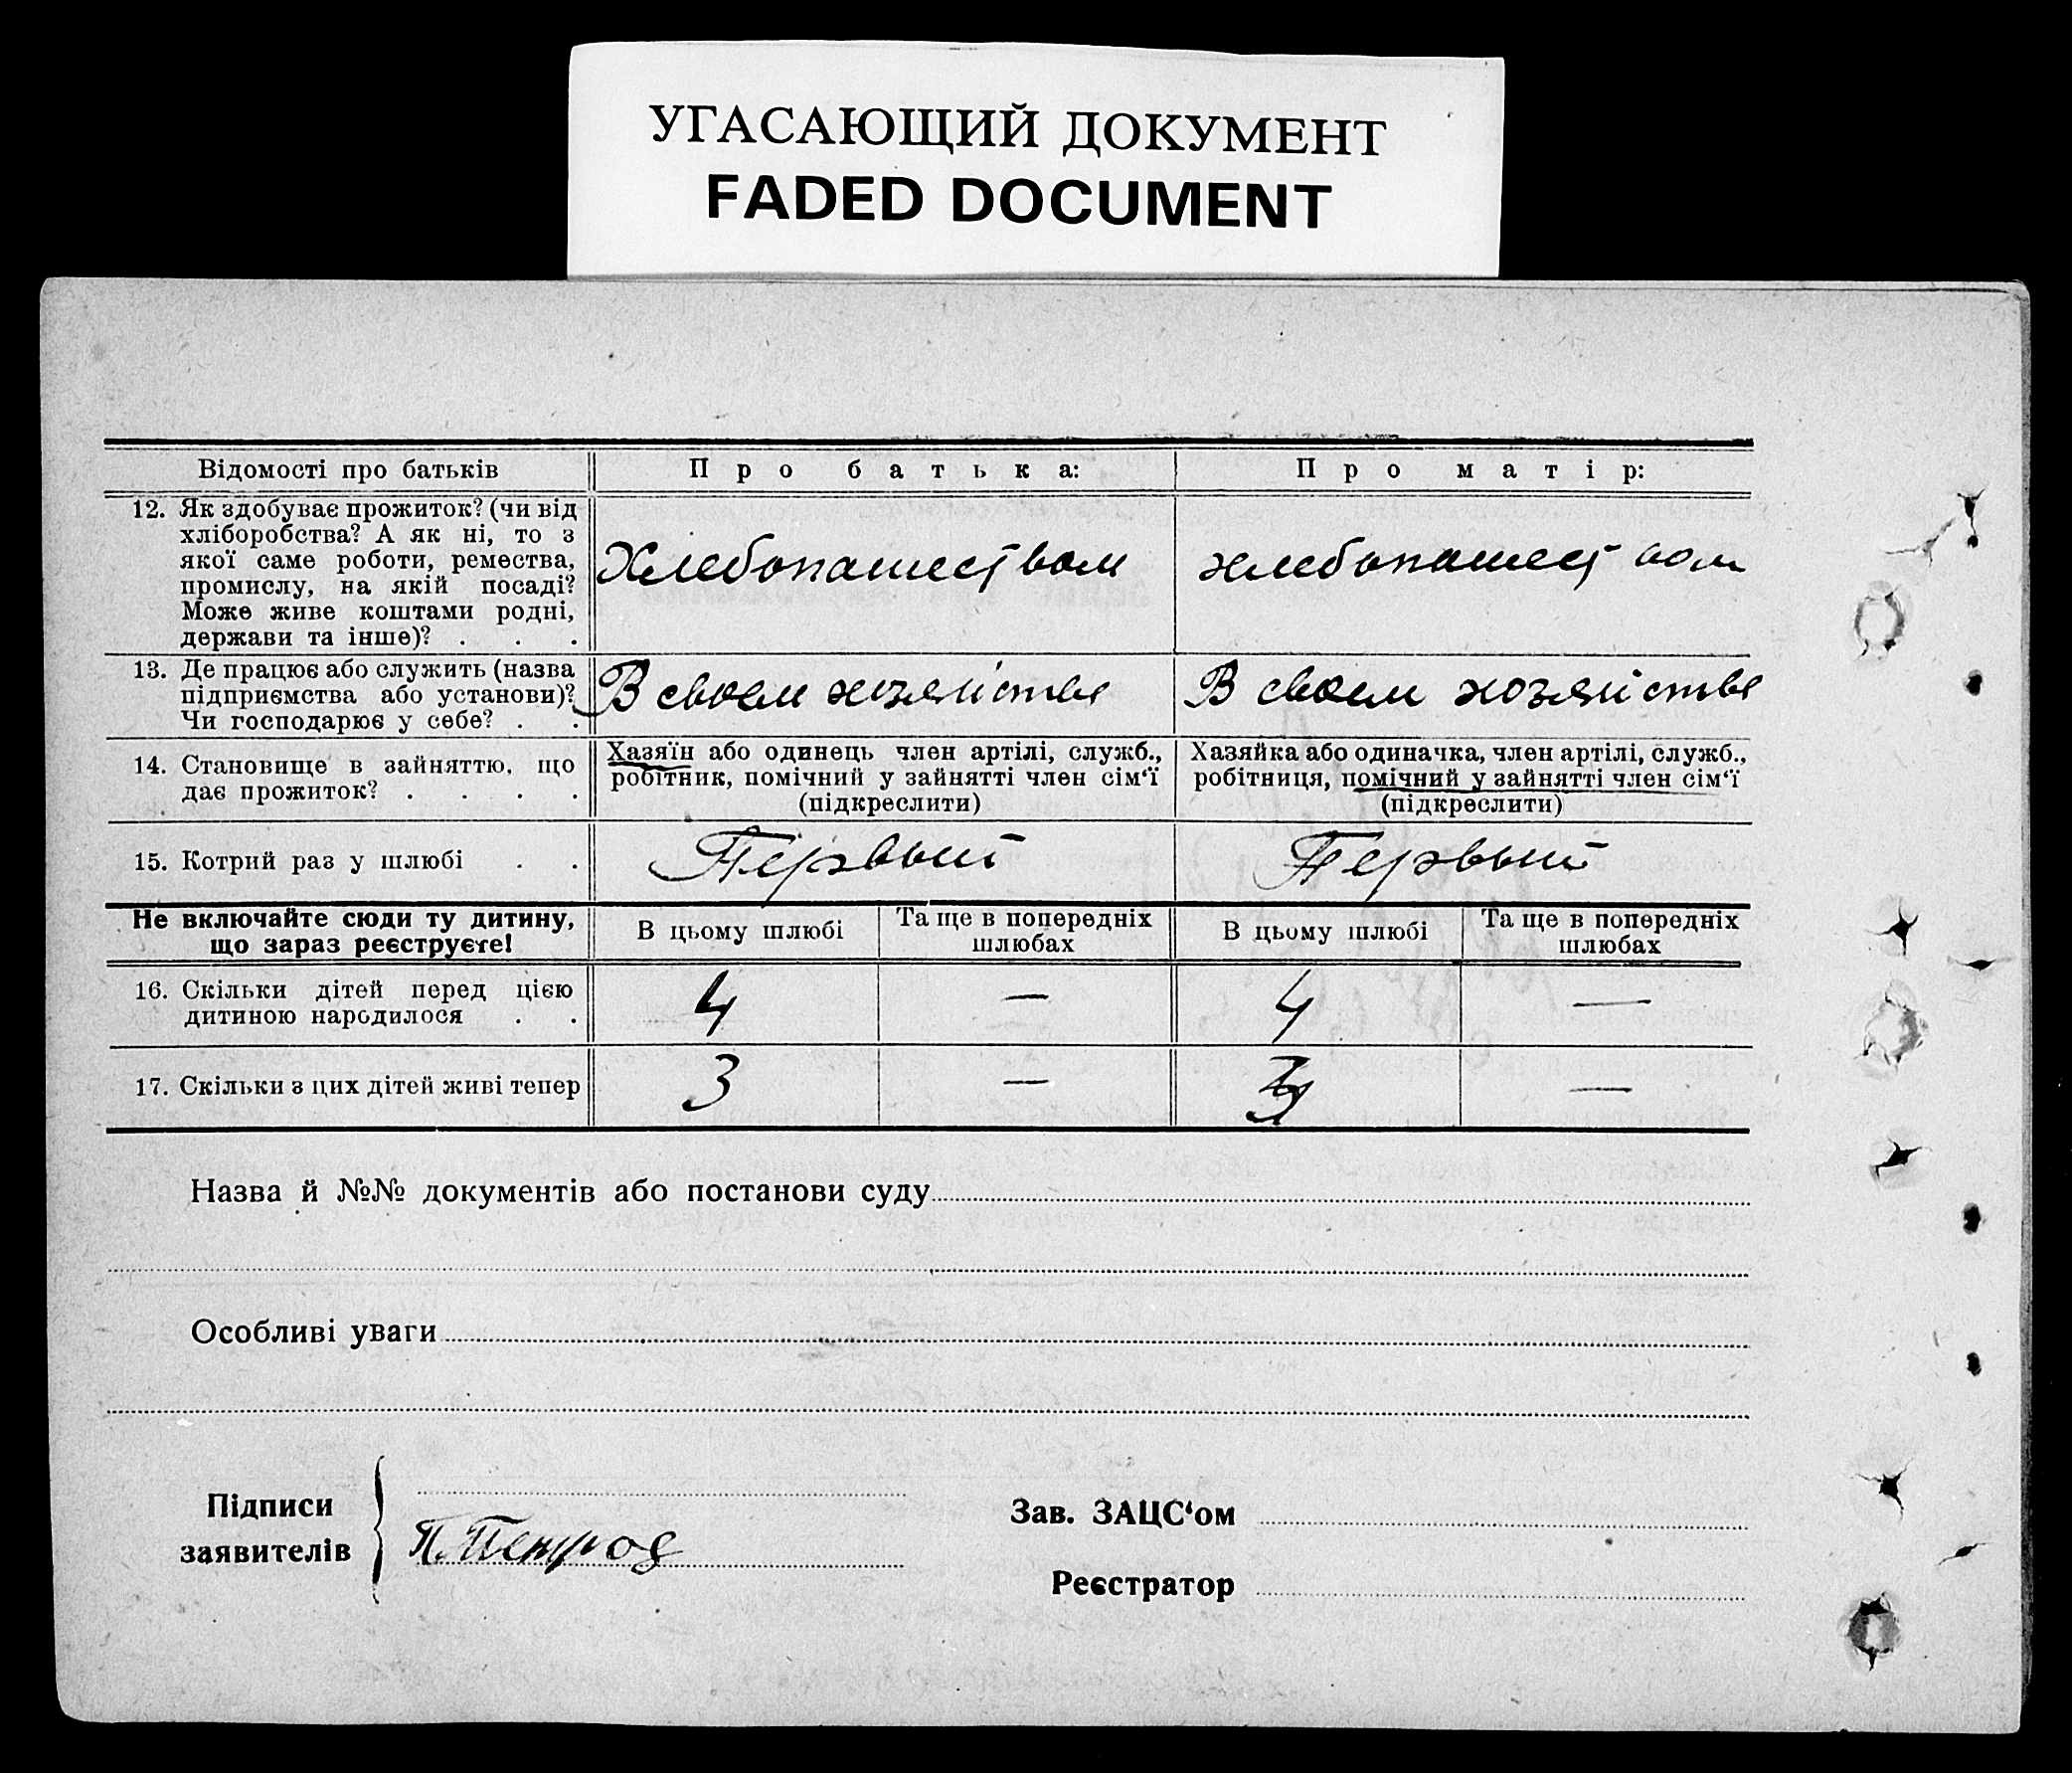 УГАСАЮЩИЙ ДОКУМЕНТ
FADED DOCUMENT
Відомості про батьків
Про батька:
Про матір:
12. Як здобуває прожиток? (чи від
хліборобства? А як ні, то з
якої саме роботи, ремества,
промислу, на якій посаді?
Може живе коштами родні,
держави та інше)? . . .
Хлебопашеством
хлебопашеством
13. Де працює або служить (назва
підприємства або установи)?
Чи господарює у себе? . .
В своем хозяйстве
В своем хозяйстве
14. Становище в зайняттю, що
дає прожиток? . . . .
Хазяїн або одинець член артілі, служб.,
робітник, помічний у зайнятті член сім‘ї
(підкреслити)
Хазяйка або одиначка, член артілі, служб.,
робітниця, помічний у зайнятті член сім‘ї
(підкреслити)
15. Котрий раз у шлюбі . .
Первый
Первый
Не включайте сюди ту дитину,
що зараз реєструєте!
В цьому шлюбі
Та ще в попередніх
шлюбах
В цьому шлюбі
Та ще в попередніх
шлюбах
16. Скільки дітей перед цією
дитиною народилося . .
4
—
4
—
17. Скільки з цих дітей живі тепер
3
—
3
—
Назва й №№ документів або постанови суду
Особливі уваги
Підписи
заявителів
П. Петров
Зав. ЗАЦС‘ом
Реєстратор